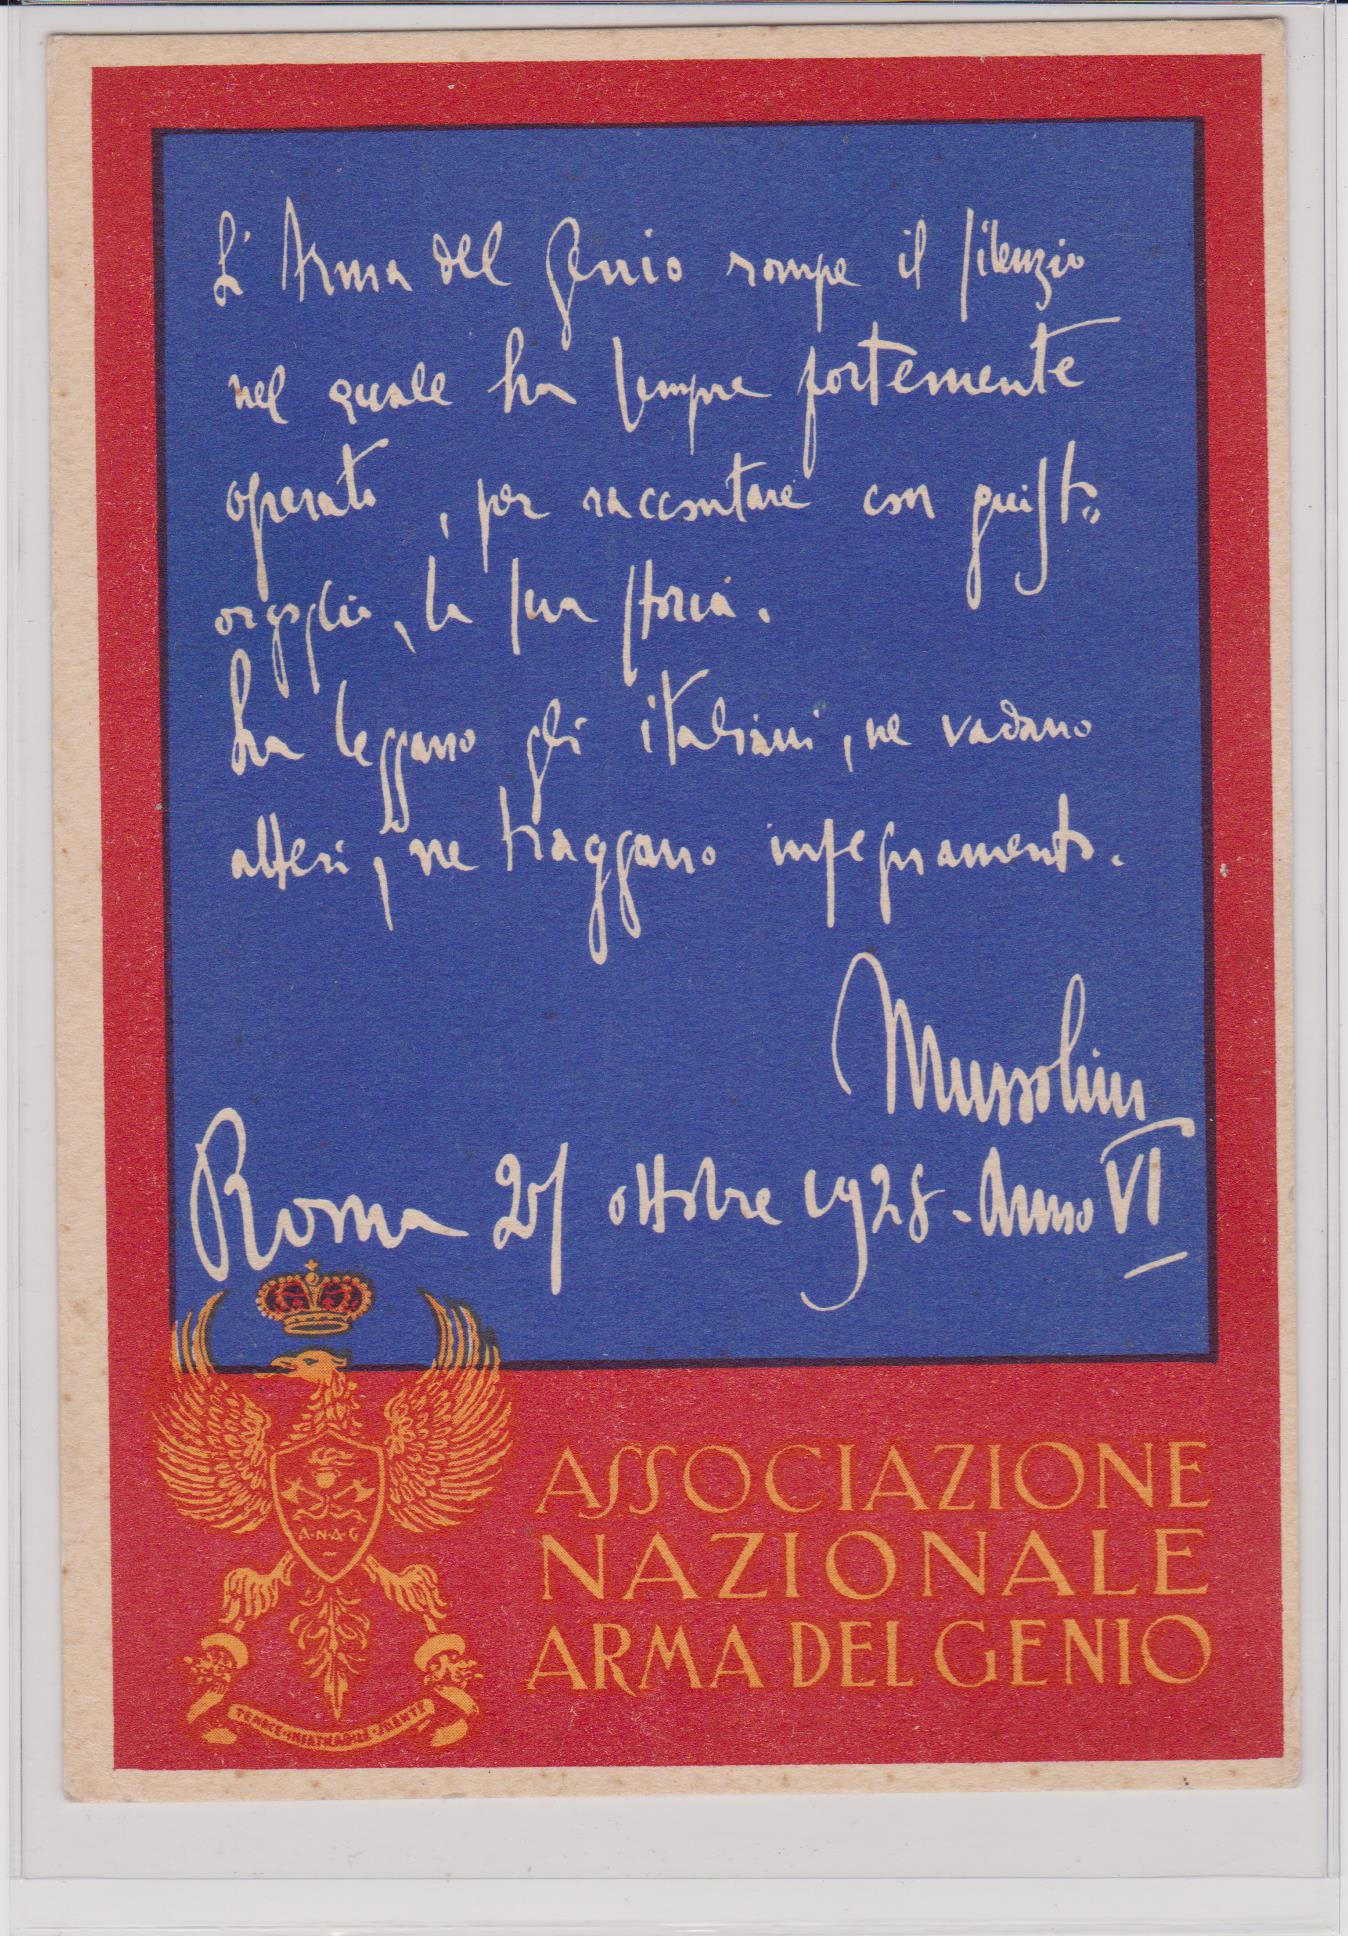 L'Arma del Genio rompe il silenzio
nel quale ha sempre fortemente
operato, per raccontare con giusto
orgoglio, la sua storia.
La leggano gli italiani, ne vadano
alteri, ne traggano insegnamento.
Mussolini
Roma 21 ottobre 1928 - Anno VI
A·N·A·G
TENACE·INFATICABILE·SILENTE
ASSOCIAZIONE
NAZIONALE
ARMA DEL GENIO